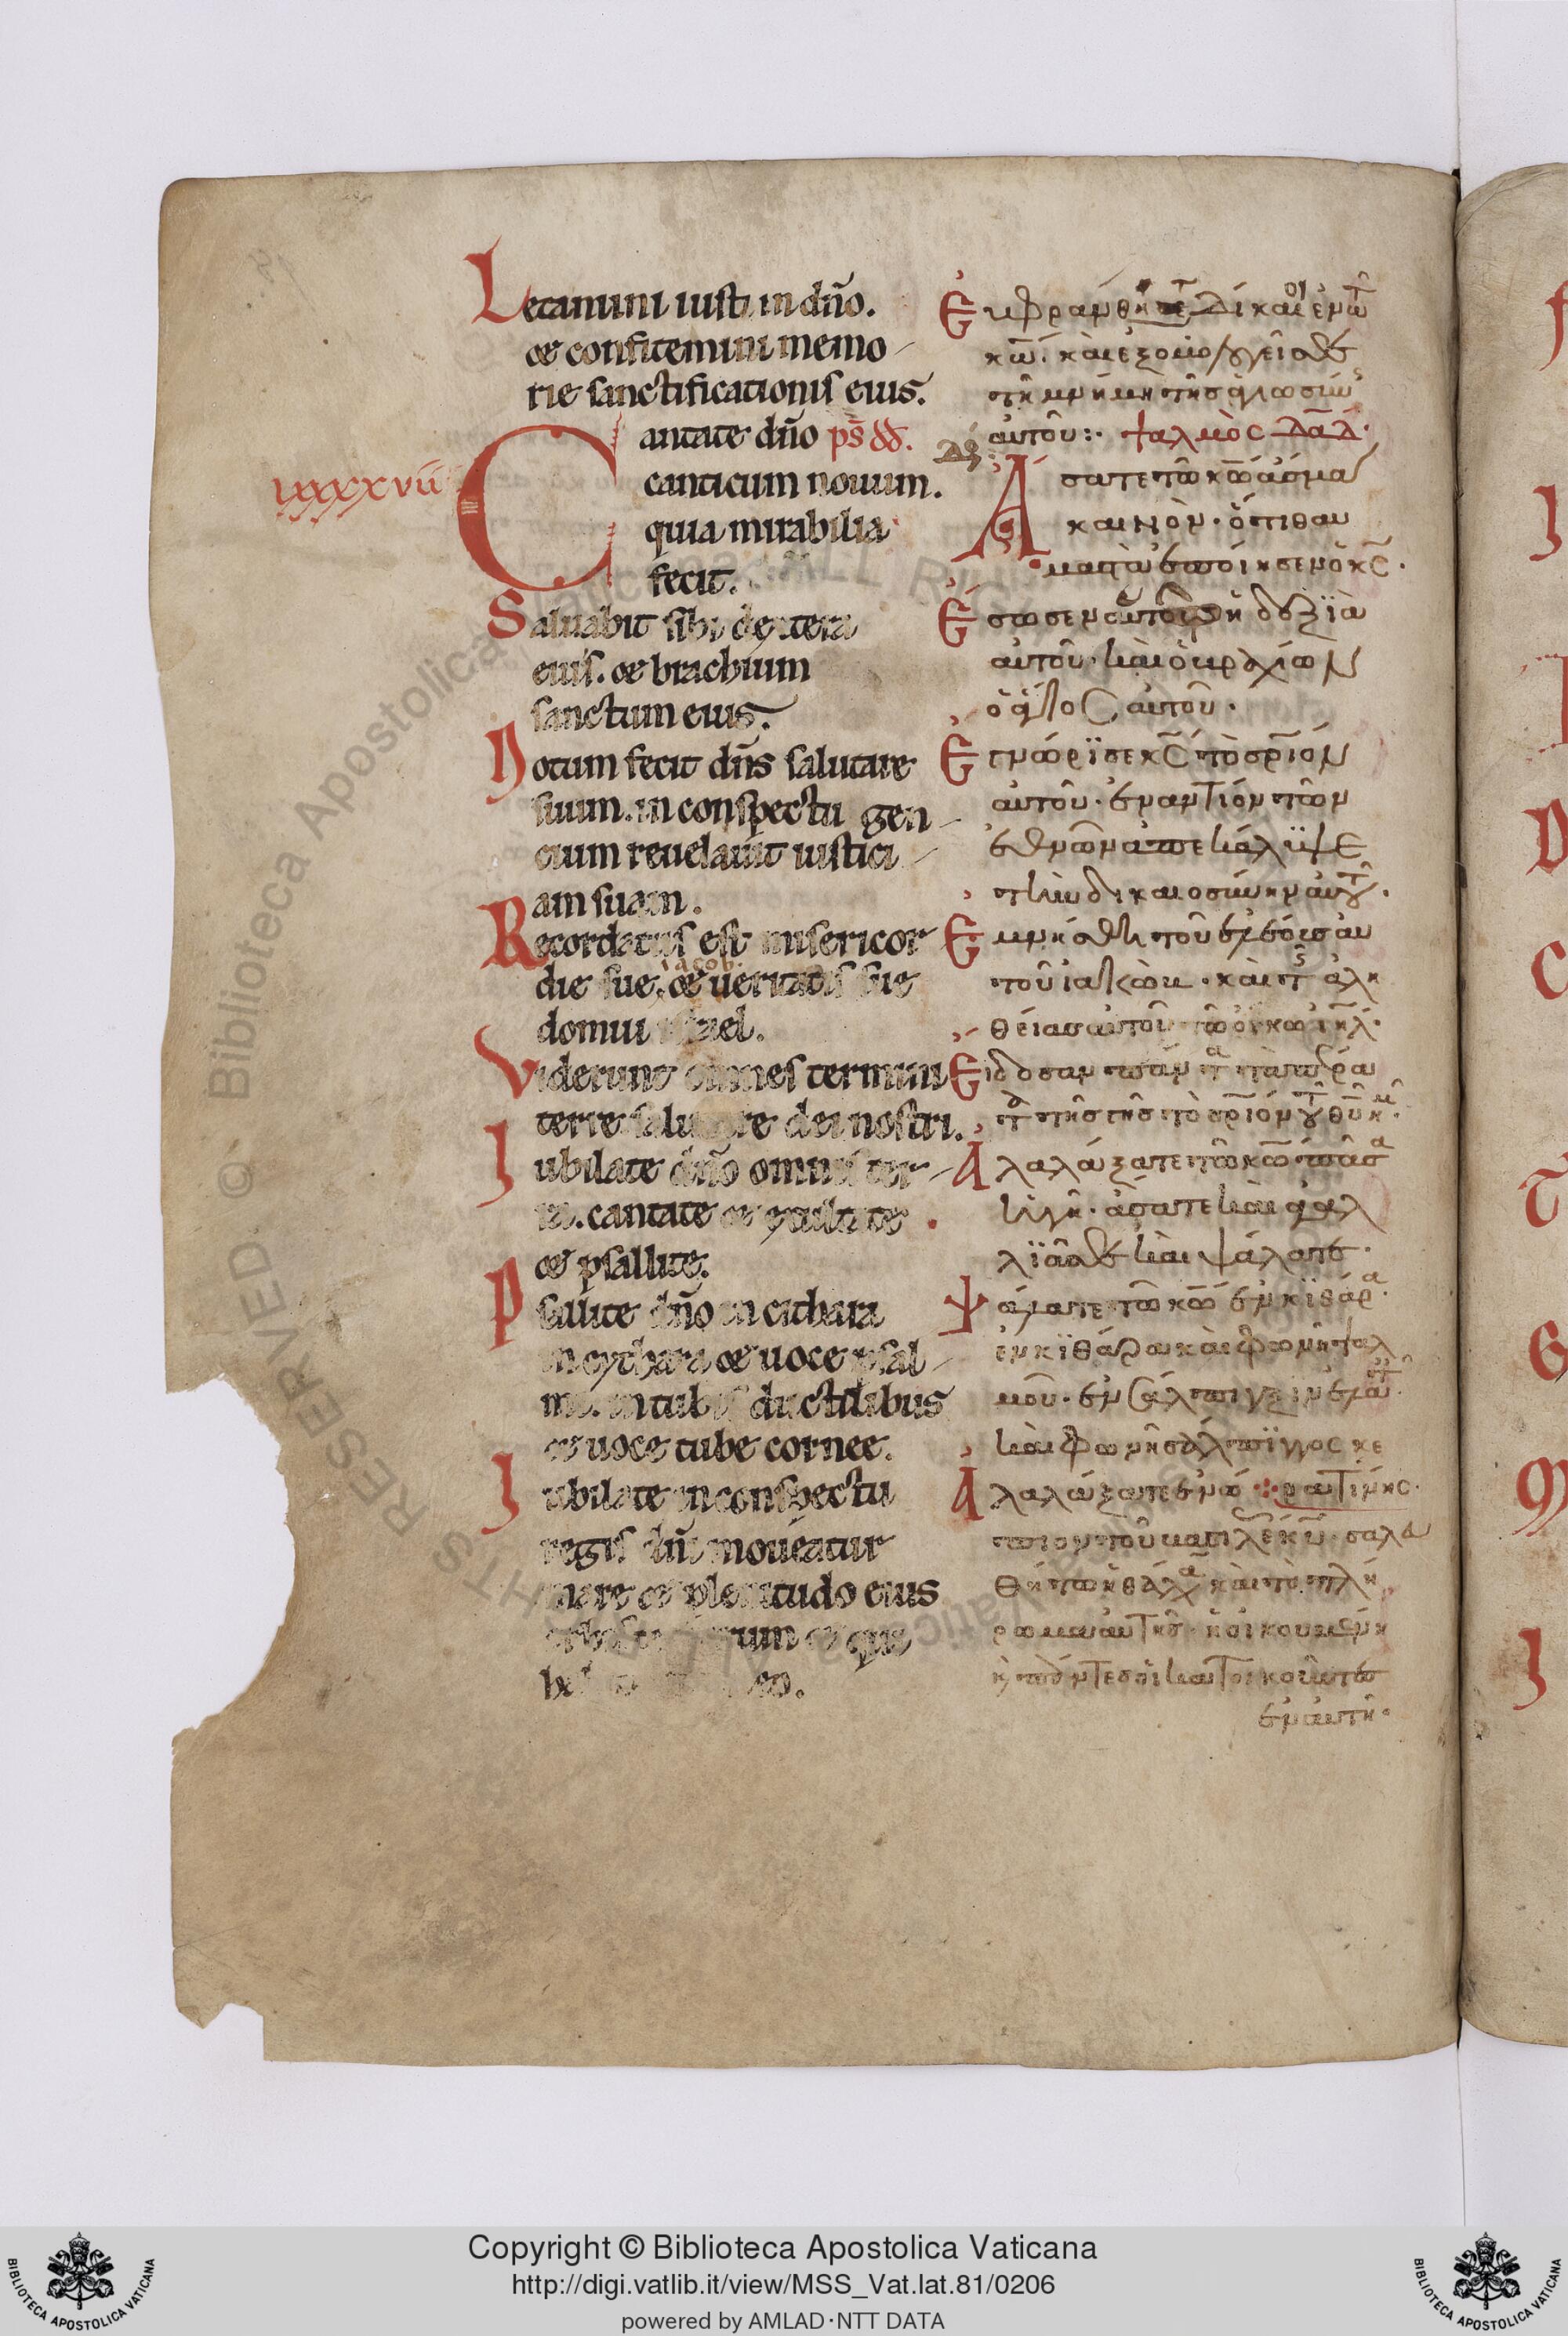 Letamini iusti in dño.
et confitemini memo
rie sanctificationis eius.
Cantate dño ps̄ dd.
lxxxxvii
canticum nouum.
quia mirabilia
fecit.
Saluabit sibi dextera
eius. et brachium
sanctum eius.
Notum fecit dñs salutare
suum. in conspectu gen
cium reuelauit iustici
am suam.
Recordatus est misericor
die sue. et ueritatis sue
iacob.
domui israel.
Viderunt omnes termini
terre salutare dei nostri.
Iubilate dño omnis ter
ra. cantate et exultate
et psallite.
Psallite dño in cithara
in cythara et uoce psal
mi. in tubis ductilibus
et uoce tube cornee.
Iubilate in conspectu
regis dñi moueatur
mare et plenitudo eius
orbis terrarum et qui
Εὐφράνθητε δίκαιοι ἐν τῶ
κω̅. καὶ ἐξομολογεῖσθε
τῆ μνήμη τῆς ἁγιωσύνης
αὐτοῦ:· ψαλμὸς δα̅δ·
Ἄσατε τῶ κω̅ ἆσμα
καινὸν· ὅτι θαυ
μαστὰ ἐποίησεν ὁ κς̅.
Ἔσωσεν αὐτὸν ἡ δεξϊὰ
αὐτοῦ· καὶ ὁ βραχίων
ὁ ἅγιος αὐτοῦ.
Ἐγνώρϊσε κς̅ τὸ σρ̅ιον
αὐτοῦ· ἐναντίον τῶν
ἐθνῶν ἀπεκάλϋψε
τὴν δικαιοσύνην αὐτοῦ.
Ἐμνήσθη τοῦ ἐλέους αὐ
τοῦ ἰακὼβ· καὶ τῆς ἀλη
θείας αὐτοῦ τῶ οἴκω ιηλ̅·
Εἴδοσαν πάντα τὰ πέρα
τα τῆς γῆς τὸ σρ̅ιον τοῦ θυ̅ ἡμῶν.
Ἀλαλάξατε τῶ κω̅ πᾶσα
ἡ γῆ· ἄσατε καὶ ἀγαλ
λϊᾶσθε καὶ ψάλατε·
Ψάλατε τῶ κω̅ ἐν κϊθάρα·
ἐν κϊθάρα καὶ φωνῆ ψαλ
μοῦ· ἐν σάλπιγξιν ἐλαταῖς
καὶ φωνῆ σάλπϊγγος κε
ρατίνης.
Ἀλαλάξατε ἐνώ
πιον τοῦ βασιλέως κυ̅· σαλευ
θήτω ἡ θάλασσα καὶ τὸ πλή
ρωμα αὐτῆς· ἡ οἰκουμένη
κ πάντες οἱ κατοικοῦντες
ἐν αὐτῆ·
Copyright © Biblioteca Apostolica Vaticana
http://digi.vatlib.it/view/MSS_Vat.lat.81/0206
powered by AMLAD·NTT DATA